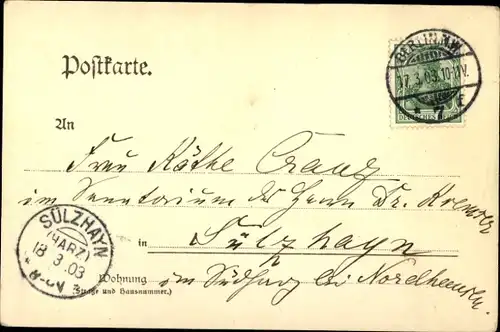 Postkarte.
BERLIN N.W.
17.3.03.10-11V.
* 7
DEUTSCHES REICH
An
Frau Käthe
im Sanatorium des Herrn Dr. Kremser
in Sülzhayn
SÜLZHAYN
(HARZ)
18 3 03
Wohnung im Südharz bei Nordhausen
(Straße und Hausnummer.)